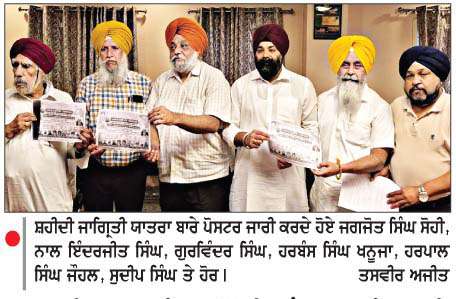 ਸ਼ਹੀਦੀ ਜਾਗ੍ਰਿਤੀ ਯਾਤਰਾ ਬਾਰੇ ਪੋਸਟਰ ਜਾਰੀ ਕਰਦੇ ਹੋਏ ਜਗਜੋਤ ਸਿੰਘ ਸੋਹੀ,
ਨਾਲ ਇੰਦਰਜੀਤ ਸਿੰਘ, ਗੁਰਵਿੰਦਰ ਸਿੰਘ, ਹਰਬੰਸ ਸਿੰਘ ਖਨੂਜਾ, ਹਰਪਾਲ
ਸਿੰਘ ਜੌਹਲ, ਸੁਦੀਪ ਸਿੰਘ ਤੇ ਹੋਰ। ਤਸਵੀਰ ਅਜੀਤ